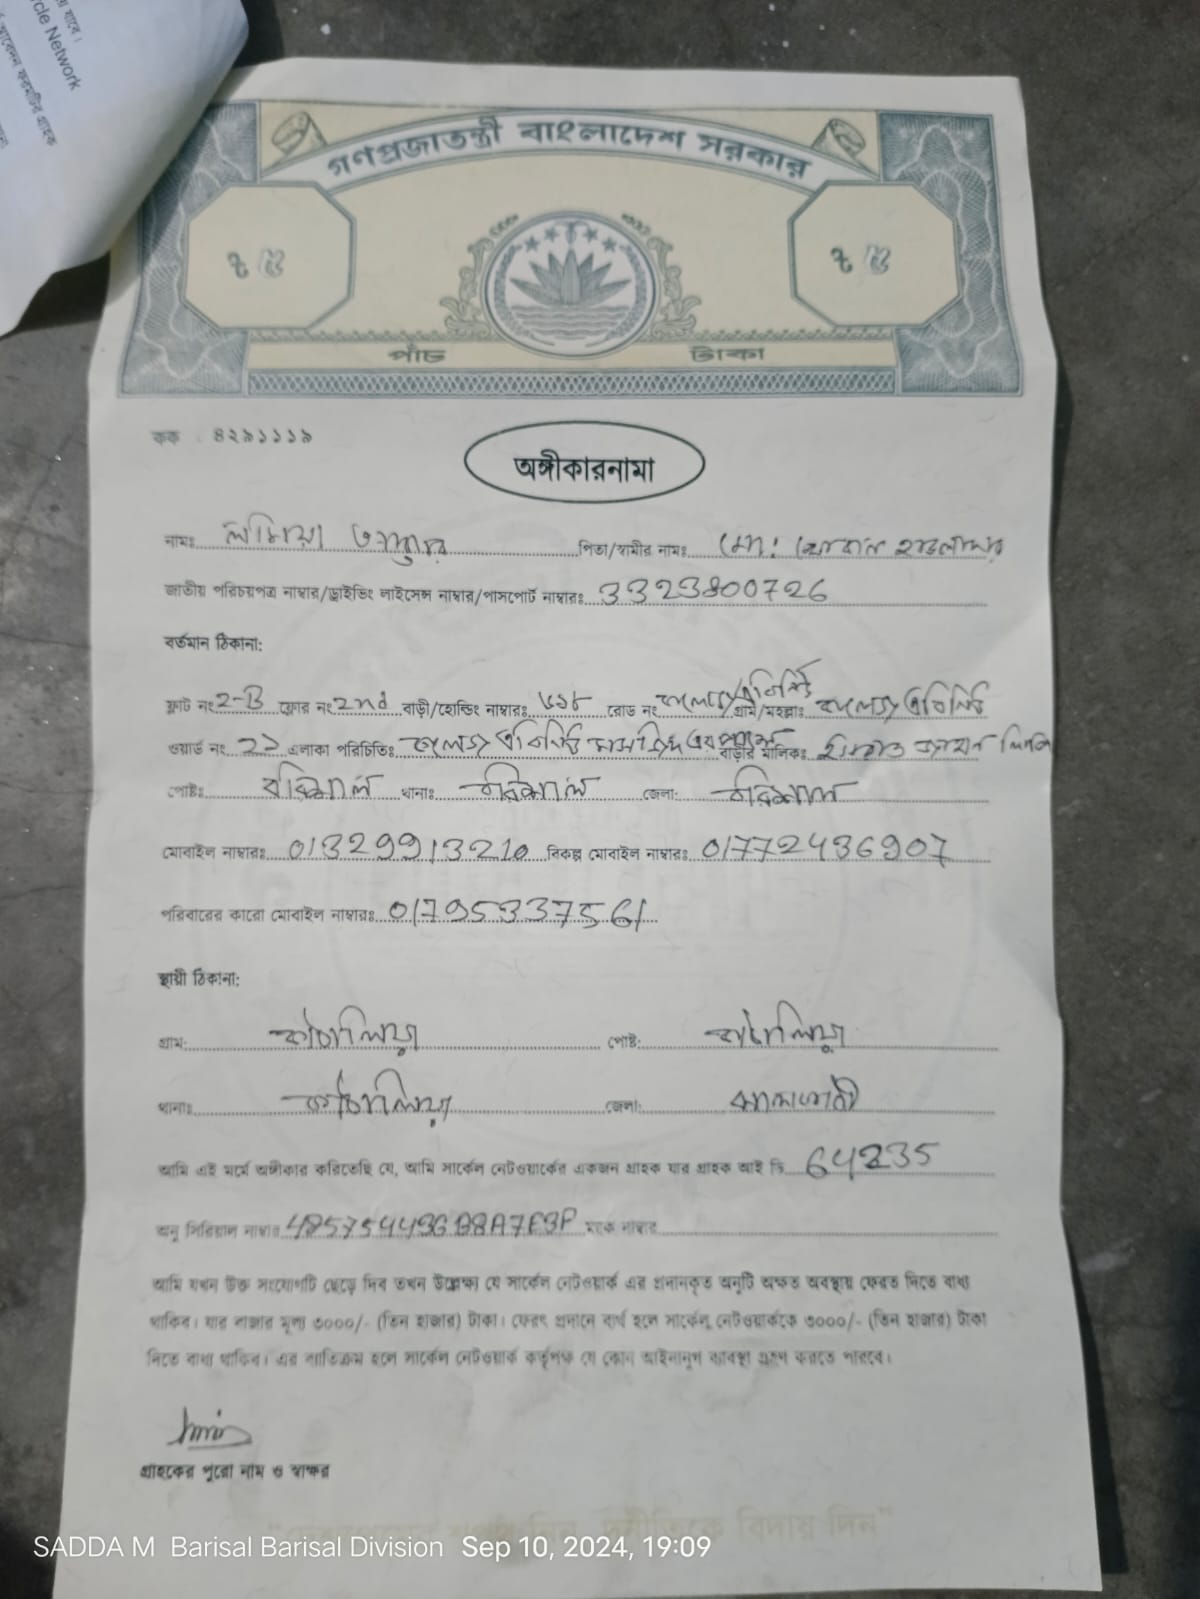 যাবে।
cle Network
আবেদন ফরমটির গ্রাহক
গণপ্রজাতন্ত্রী বাংলাদেশ সরকার
৳ ৫ ৳ ৫
পাঁচ টাকা
কক : ৪২৯১১১৯
অঙ্গীকারনামা
নামঃ লামিয়া আক্তার পিতা/স্বামীর নামঃ মো: হাওলাদার
জাতীয় পরিচয়পত্র নাম্বার/ড্রাইভিং লাইসেন্স নাম্বার/পাসপোর্ট নাম্বারঃ 3323800726
বর্তমান ঠিকানা:
ফ্লাট নং 2-B ফ্লোর নং 2nd বাড়ী/হোল্ডিং নাম্বারঃ রোড নং কলেজ এভিনিউ গ্রাম/মহল্লাঃ কলেজ এভিনিউ
ওয়ার্ড নং 21 এলাকা পরিচিতিঃ কলেজ এভিনিউ এর পাশে বাড়ীর মালিকঃ
পোষ্টঃ বরিশাল থানাঃ বরিশাল জেলা: বরিশাল
মোবাইল নাম্বারঃ 01329913210 বিকল্প মোবাইল নাম্বারঃ 01772436907
পরিবারের কারো মোবাইল নাম্বারঃ 01795337561
স্থায়ী ঠিকানা:
গ্রাম: কাঠালিয়া পোষ্ট: কাঠালিয়া
থানাঃ কাঠালিয়া জেলা: ঝালকাঠী
আমি এই মর্মে অঙ্গীকার করিতেছি যে, আমি সার্কেল নেটওয়ার্কের একজন গ্রাহক যার গ্রাহক আই ডি 64235
অনু সিরিয়াল নাম্বার মকে নাম্বার
আমি যখন উক্ত সংযোগটি ছেড়ে দিব তখন উল্লেক্ষ্য যে সার্কেল নেটওয়ার্ক এর প্রদানকৃত অনুটি অক্ষত অবস্থায় ফেরত দিতে বাধ্য
থাকিব। যার বাজার মূল্য ৩০০০/- (তিন হাজার) টাকা। ফেরৎ প্রদানে ব্যর্থ হলে সার্কেল নেটওয়ার্ককে ৩০০০/- (তিন হাজার) টাকা
দিতে বাধ্য থাকিব। এর ব্যতিক্রম হলে সার্কেল নেটওয়ার্ক কর্তৃপক্ষ যে কোন আইনানুগ ব্যবস্থা গ্রহণ করতে পারবে।
গ্রাহকের পুরো নাম ও স্বাক্ষর
বিদায় দিন"
SADDA M Barisal Barisal Division Sep 10, 2024, 19:09